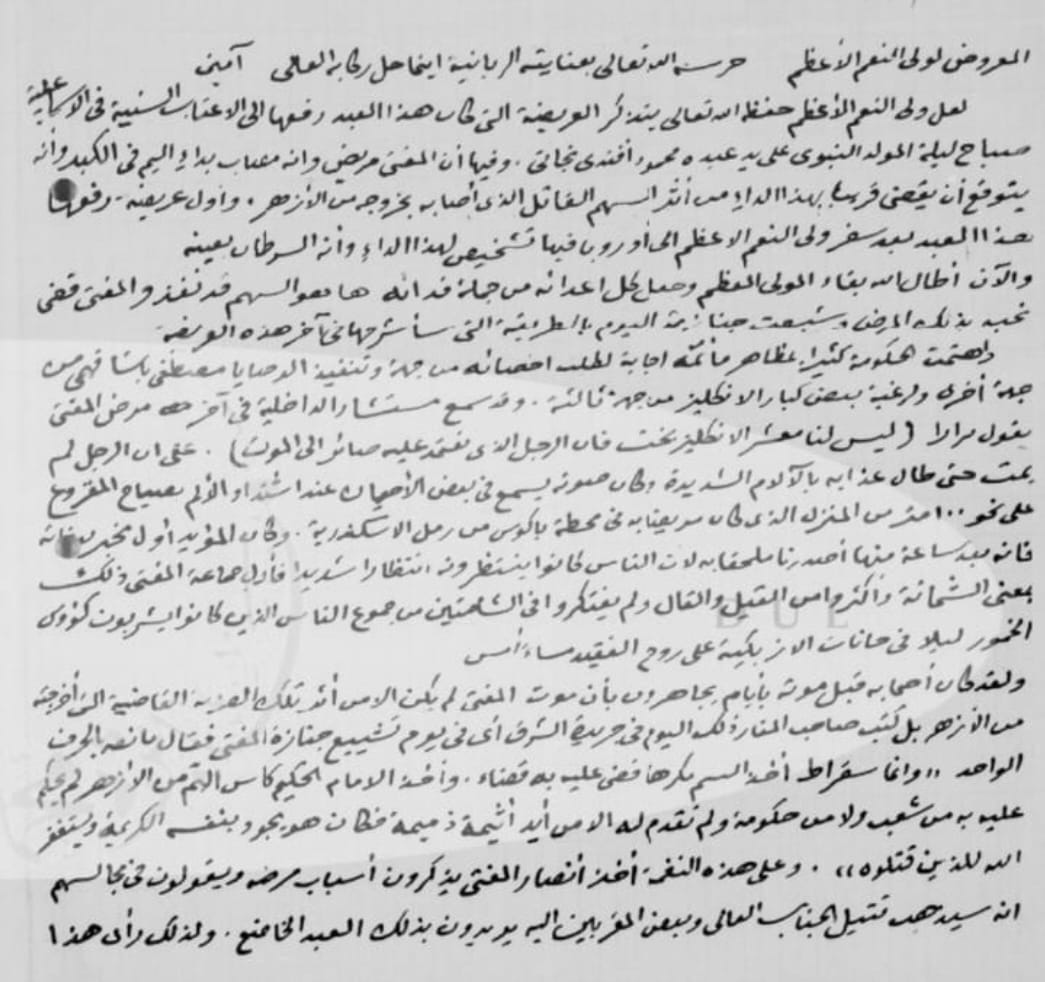 المعروض لولى النعم الأعظم حرسه الله تعالى بعنايته الربانية اينما حل ركابه العالى آمين
لعل ولى النعم الأعظم حفظه الله تعالى يتذكر العريضة التى كان هذا العبد رفعها الى الاعتاب السنية فى الاسكندرية
صباح ليلة المولد النبوى على يد عبده محمود أفندى نجاتى . وفيها أن المفتى مريض وانه مصاب بداء اليم فى الكبد وأنه
يتوقع أن يقضى قريبا بهذا الداء من أثر السهم القاتل الذى أصابه بخروجه من الأزهر . وأول عريضة رفعها
هذا العبد بعد سفر ولى النعم الاعظم الى أوروبا فيها تشخيص لهذا الداء وأنه السرطان بعينه
والآن أطال الله بقاء المولى المعظم وجعل كل اعدائه من جملة فدائه ها هو السهم قد نفذ والمفتى قضى
نحبه بذلك المرض وشيعت جنازته اليوم بالطريقة التى سأشرحها فى آخر هذه العريضة
واهتمت الحكومة كثيرا بمظاهر مأتمه اجابة لطلب اخصائه من جهة وتنفيذ الوصايا مصطفى باشا فهمى من
جهة أخرى ولرغبة بعض كبار الانكليز من جهة ثالثة . وقد سمع مستشار الداخلية فى آخر مرض المفتى
يقول مرارا (ليس لنا معشر الانكليز بخت فان الرجل الذى نعتمد عليه صائر الى الموت) . على ان الرجل لم
يمت حتى طال عذابه بالآلام الشديدة وكان صوته يسمع فى بعض الأحيان عند اشتداد الألم بصياح المفزوع
على نحو ١٠٠ متر من المنزل الذى كان مريضا به فى محطة باكوس من رمل الاسكندرية . وكان المؤيد أول مخبر بوفاته
فانه بعد ساعة منها أصدرنا ملحقا به لان الناس كانوا ينتظرونه انتظارا شديدا فأول جماعة المفتى ذلك
بمعنى الشماتة وأكثروا من القيل والقال ولم يفتكروا فى الشامتين من جموع الناس الذين كانوا يشربون كؤوس
الخمور ليلا فى حانات الازبكية على روح الفقيد مساء أمس
ولقد كان أصحابه قبل موته بأيام يجاهرون بأن موت المفتى لم يكن الا من أثر تلك الضربة القاضية التى أخرجته
من الأزهر بل كتب صاحب المنار ذلك اليوم فى جريدة الشرق أى فى يوم تشييع جنازة المفتى فقال ما نصه بالحرف
الواحد «وانما سقراط أخذ السم مكرها قضى عليه به قضاء . وأخذ الامام الحكيم كاس السم من الأزهر لم يحكم
عليه به من شعب ولا من حكومة ولم تقدم له الا من أيد أثيمة ذميمة فكان هو يجود بنفسه الكريمة ويستغفر
الله للذين قتلوه» . وعلى هذه النغمة أخذ أنصار المفتى يذكرون أسباب مرضه ويقولون فى مجالسهم
انه سيد هب قتيل الجناب العالى وبعض المقربين اليه يريدون بذلك العبد الخاضع . ولذلك رأى هذا